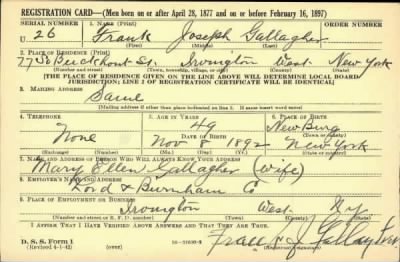 REGISTRATION CARD—(Men born on or after April 28, 1877 and on or before February 16, 1897)
SERIAL NUMBER 1. NAME (Print)
U. 26 Frank Joseph Gallagher
(First) (Middle) (Last)
2. PLACE OF RESIDENCE (Print)
77 So Buckhout St. Irvington West New York
(Number and street) (Town, township, village, or city) (County) (State)
[THE PLACE OF RESIDENCE GIVEN ON THE LINE ABOVE WILL DETERMINE LOCAL BOARD
JURISDICTION; LINE 2 OF REGISTRATION CERTIFICATE WILL BE IDENTICAL]
3. MAILING ADDRESS
Same
[Mailing address if other than place indicated on line 2. If same insert word same]
4. TELEPHONE 5. AGE IN YEARS 6. PLACE OF BIRTH
None 49 New Burg
DATE OF BIRTH (Town or county)
Nov 8 1892 New York
(Exchange) (Number) (Mo.) (Day) (Yr.) (State or country)
7. NAME AND ADDRESS OF PERSON WHO WILL ALWAYS KNOW YOUR ADDRESS
Mary Ellen Gallagher (wife)
8. EMPLOYER'S NAME AND ADDRESS
Lord & Burnham Co
9. PLACE OF EMPLOYMENT OR BUSINESS
Irvington West. Ny
(Number and street or R. F. D. number) (Town) (County) (State)
I AFFIRM THAT I HAVE VERIFIED ABOVE ANSWERS AND THAT THEY ARE TRUE.
D. S. S. Form 1
(Revised 4-1-42) (over)
(Registrant's signature)